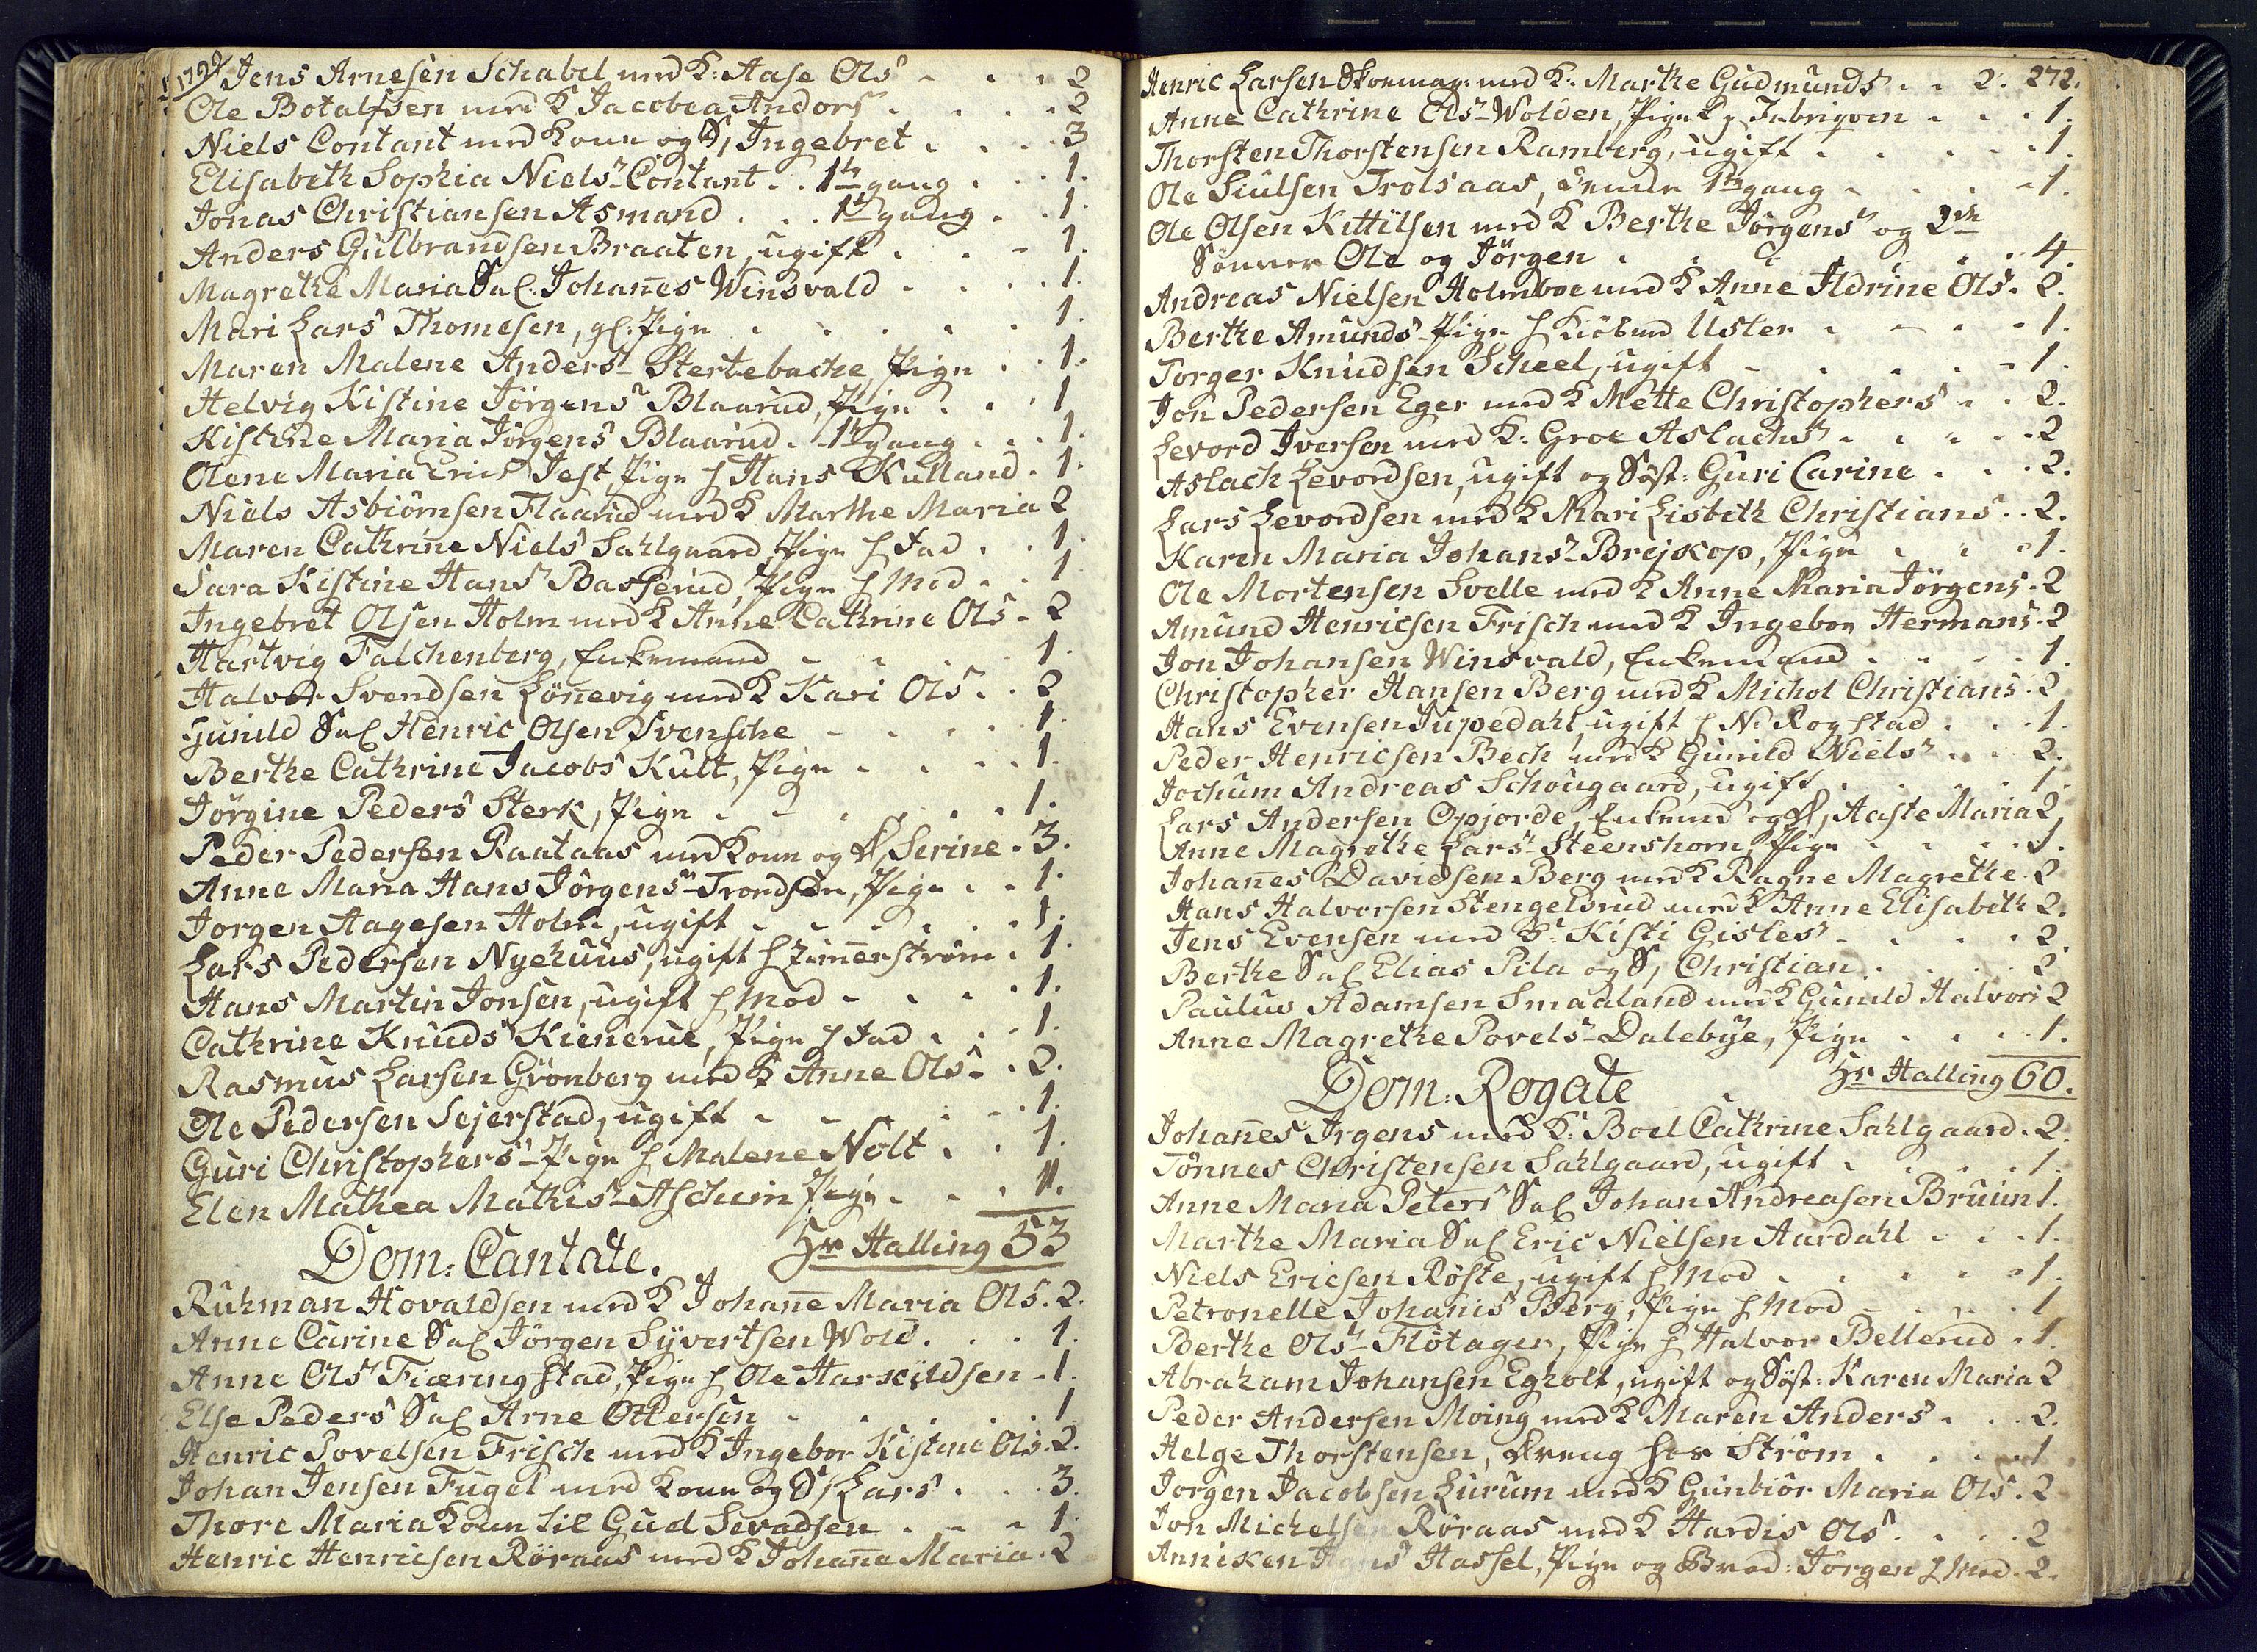 Jens Arnesen Schabel med K: Aase Ols 2
Ole Botalfsen med K Jacobea Andors 2
Niels Contant med Kone og S, Ingebret 3
Elisabeth Sophia Niels Contant 1te gang 1.
Jonas Christiansen Asmand 1te gang 1.
Anders Gulbrandsen Braaten, ugift 1.
Magrethe Maria Sal. Johan̄es Winsvald 1.
Mari Lars Thomesen, gl. Pige 1.
Maren Malene Anders Stertebache, Pige 1.
Helvig Kistine Jörgens Blaarud, Pige 1
Kistine Maria Jörgens Blaarud 1te gang 1.
Olene Maria Erics Jest, Pige h Hans Kulland 1.
Niels Asbiörnsen Flaarud med K Marthe Maria 2
Maren Cathrine Niels Sahlgaard Pige h Fad 1.
Sara Kistine Hans Basserud, Pige h Mod 1
Ingebret Olsen Holm med K Anne Cathrine Ols 2
Hartvig Falchenberg, Enkemand 1.
Halvor Svendsen Lön̄evig med K Kari Ols 2
Gunild Sal Henric Olsen Svensche 1.
Berthe Cathrine Jacobs Kult, Pige 1.
Jörgine Peders Sterk, Pige 1.
Peder Pedersen Raataas med Kone og D, Serine 3.
Anne Maria Hans Jörgens Trondsen, Pige 1.
Jorgen Aagesen Holm, ugift 1.
Lars Pedersen Nyehuus, ugift h Zim̄erström 1.
Hans Martin Jonsen, ugift h Mod 1.
Cathrine Knuds Kienerue, Pige h Fad 1.
Rasmus Larsen Grönberg med K Anne Ols 2.
Ole Pedersen Sejerstad, ugift 1.
Guri Christophers Pige h Malene Nolt 1.
Elen Mathea Mathis Ascheim Pige 1.
Hr Halling 53
Dom: Cantate.
Ruhman Hovaldsen med K Johan̄e Maria Ols. 2.
Anne Carine Sal Jörgen Syvertsen Wold 1.
Anne Ols Fiæringstad, Pige h Ole Harsildsen 1.
Else Peders Sal Arne Ottersen 1
Henric Povelsen Frisch med K Ingebor Kistine Ols. 2.
Johan Jensen Fugel med Kone og S, Lars 3.
Thore Maria Kone til Gud Sevadsen 1.
Henric Henricsen Röraas med K Johan̄e Maria. 2
Henric Larsen Skoemag. med K: Marthe Gudmunds 2. 272.
Anne Cathrine Ols Wolden, Pige 1.
Thorsten Thorstensen Ramberg, ugift 1.
Ole Siulsen Trolsaas, 1te gang 1.
Ole Olsen Kittilsen med K Berthe Jörgens og 2de
Sönner Ole og Jörgen 4.
Andreas Nielsen Holmboe med K Anne Aldrine Ols. 2.
Berthe Amunds Pige h Kiöbmd Uster 1.
Torger Knudsen Scheel, ugift 1.
Jon Pedersen Eger med K Mette Christophers 2.
Levord Iversen med K: Groe Aslachs 2
Aslach Levordsen, ugift og Söst: Guri Carine 2.
Lars Levordsen med K Mari Lisbeth Christians 2.
Karen Maria Johans Brejskop, Pige 1.
Ole Mortensen Svelle med K Anne Maria Jörgens 2
Amund Henricsen Frisch med K Ingebor Hermans 2
Jon Johansen Winsvald, Enkemand 1.
Christopher Hansen Berg med K Michol Christians 2
Hans Evensen Jupedahl, ugift h N. Rogstad 1.
Peder Henricsen Bech med K Gunild Niels 2.
Jochum Andreas Schougaard, ugift 1.
Lars Andersen Opjorde, Enkemd og D, Aaste Maria 2.
Anne Magrethe Lars Steenshorn, Pige 1.
Johan̄es Davidsen Berg med K Ragne Magrethe 2
Hans Halvorsen Stengelsrud med K Anne Elisabeth 2.
Jens Evensen med K: Kisti Gisles 2.
Berthe Sal Elias Pila og S, Christian 2
Paulus Adamsen Smaaland med K Gunild Halvors 2
Anne Magrethe Povels Dalebye, Pige 1.
Hr Halling 60.
Dom: Rogate
Johan̄es Irgens med K: Boel Cathrine Sahlgaard 2.
Tönnes Christensen Sahlgaard, ugift 1.
Anne Maria Peters Sal Johan Andreasen Bruun 1.
Marthe Maria Sal Eric Nielsen Aardahl 1.
Niels Ericsen Röste, ugift h Mod 1.
Petronelle Johanis Berg, Pige h Mod 1
Berthe Ols Flötager, Pige h Halvor Bellerud 1.
Abraham Johansen Egholt, ugift og Söst: Karen Maria 2
Peder Andersen Moing med K Maren Anders 2.
Helge Thorstensen, dreng hos Ström 1
Jorgen Jacobsen Lurum med K Gunbiör Maria Ols. 2
Jon Michelsen Röraas med K Hardis Ols 2
Anniken Hans Hassel, Pige og Brod: Jörgen h Mod. 2.